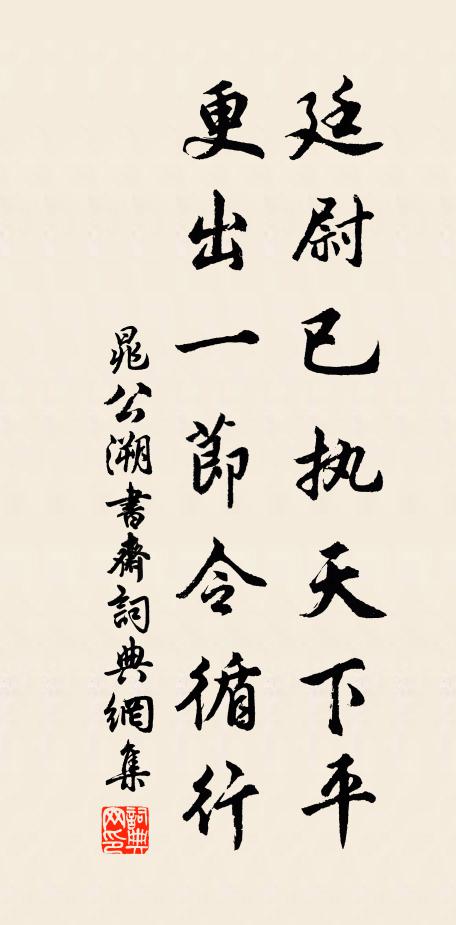 廷尉已执天下平
更出一節令循行
晁公溯書齋詞典網集
詞典网印